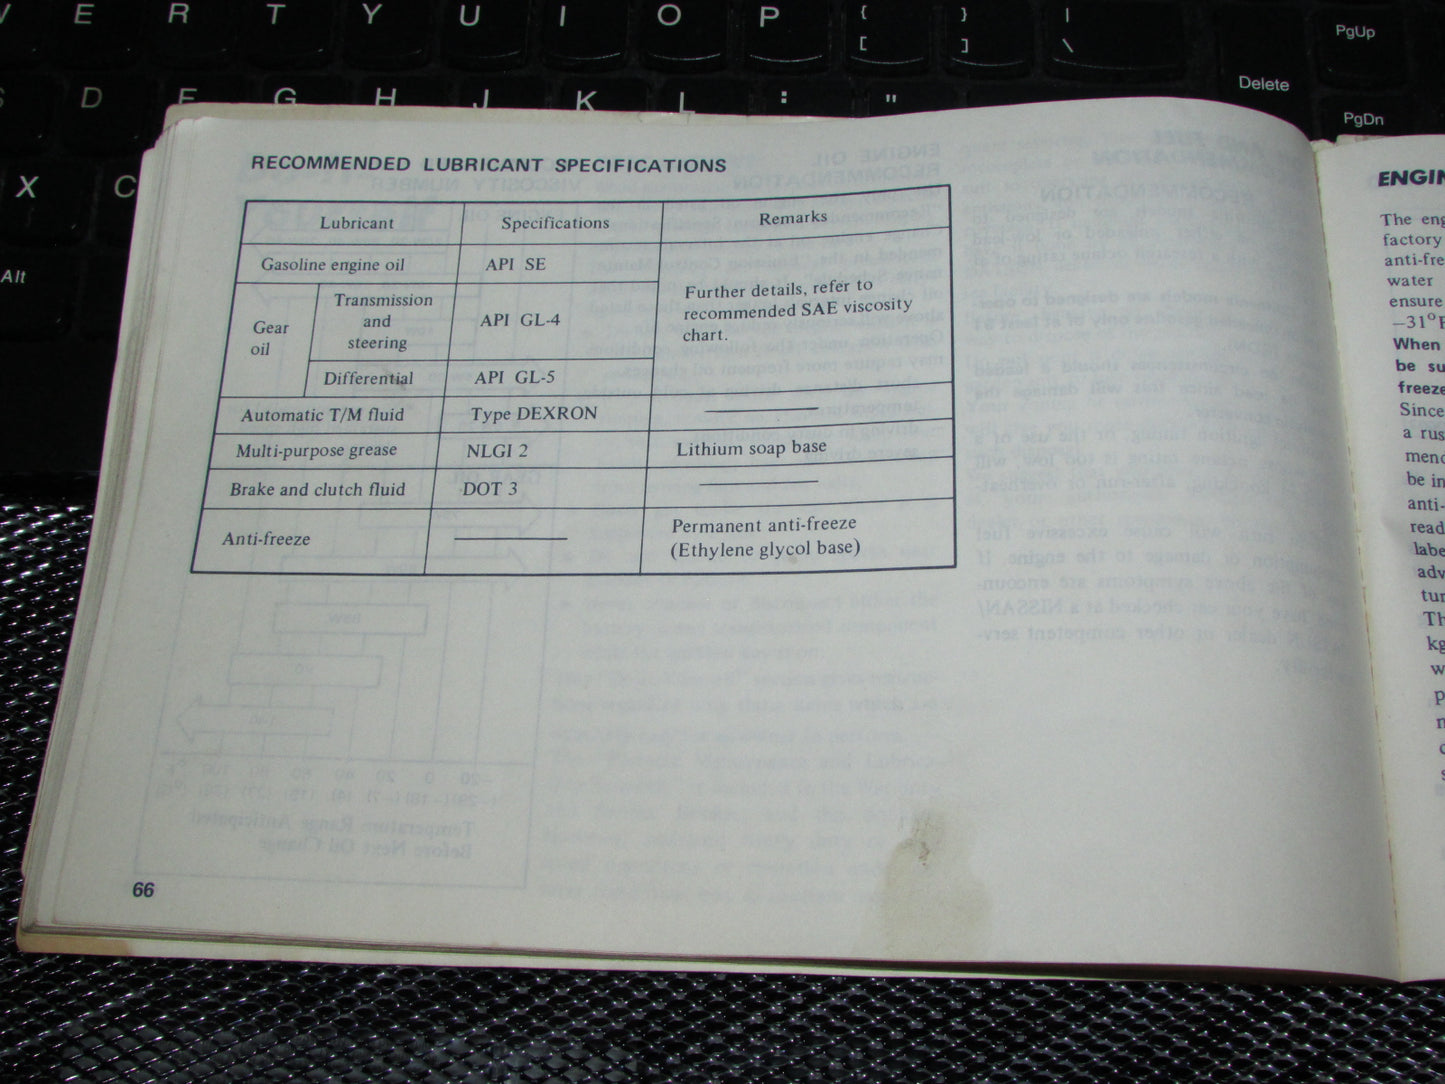 E R T Y U I O P { [ } ] | \ PgUp
D F G H J K L : " Delete
PgDn
X C
Alt
RECOMMENDED LUBRICANT SPECIFICATIONS
Lubricant Specifications Remarks
Gasoline engine oil API SE
Further details, refer to
recommended SAE viscosity
chart.
Gear
oil
Transmission
and
steering
API GL-4
Differential API GL-5
Automatic T/M fluid Type DEXRON
Multi-purpose grease NLGI 2 Lithium soap base
Brake and clutch fluid DOT 3
Anti-freeze
Permanent anti-freeze
(Ethylene glycol base)
66
ENGIN
The eng
factory
anti-fre
water
ensure
—31°F
When
be su
freeze
Since
a rus
menc
be in
anti-
read
labe
adv
tur
Th
kg
w
p